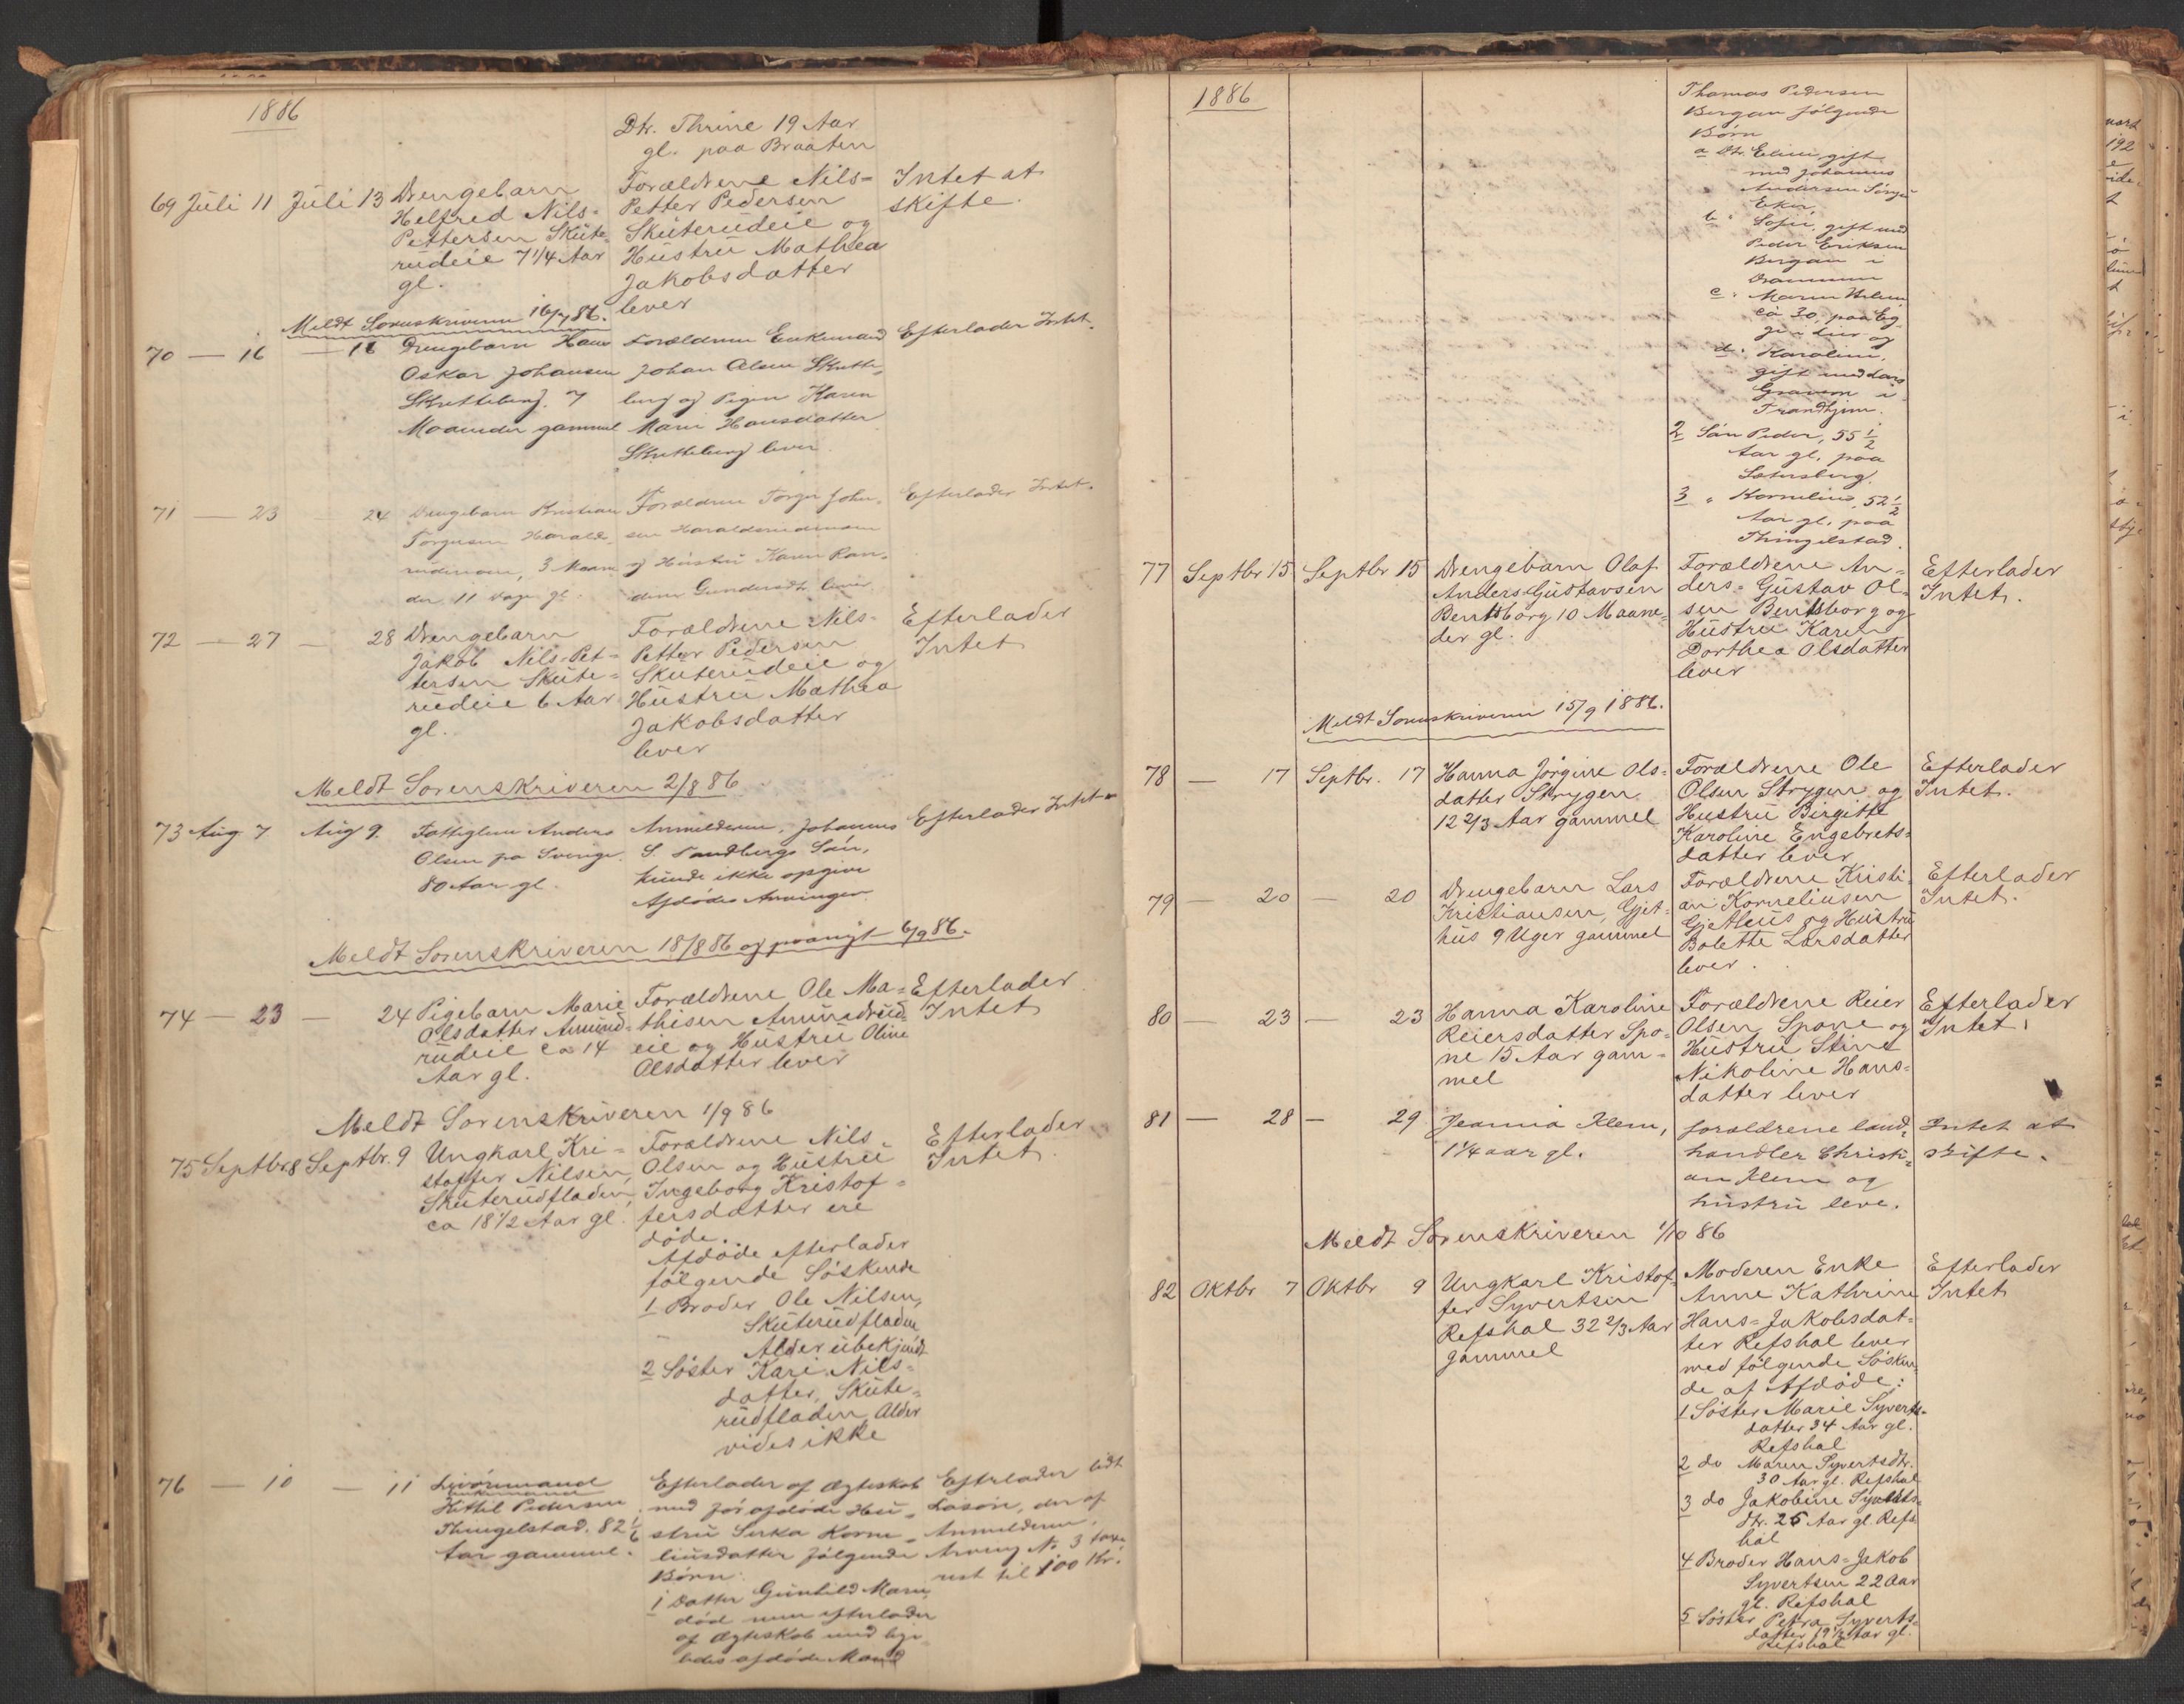 1886
Dtr. Thrine 19 Aar
gl. paa Braaten
69 Juli 11 Juli 13 Drengebarn
Helfred Nils-
Pettersen Skute-
rudeie 7 1/4 Aar
gl.
Forældrene Nils-
Petter Pedersen
Skuterudeie og
Hustru Mathea
Jakobsdatter
lever
Intet at
skifte.
Meldt Sorenskriveren 16/7 86.
70 — 16 — 16 Drengebarn Hans
Oskar Johansen
Skretteberg. 7
Maaneder gammel
Forældrene Enkemand
Johan Olsen Skrette-
berg og Pigen Karen
Marie Hansdatter
Skretteberg lever
Efterlader Intet.
71 — 23 — 24 Drengebarn Kristian
Torgersen Haralds-
rudmoen, 3 Maane-
der 11 Dage gl.
Forældrene Torger John-
sen Haraldsrudmoen
og Hustru Karen Ran-
dine Gundersdtr lever
Efterlader Intet.
72 — 27 — 28 Drengebarn
Jakob Nils-Pet-
tersen Skute-
rudeie 6 Aar
gl.
Forældrene Nils-
Petter Pedersen
Skuterudeie og
Hustru Mathea
Jakobsdatter
lever
Efterlader
Intet
Meldt Sorenskriveren 2/8 86
73 Aug 7 Aug 9. Fattiglem Anders
Olsen fra Sverige.
80 Aar gl.
Anmelderen, Johannes
S. Sandbergs Søn,
kunde ikke opgive
Afdødes Arvinger.
Efterlader Intet
Meldt Sorenskriveren 18/8 86 og paanyt 6/9 86.
74 — 23 — 24 Pigebarn Marie
Olsdatter Amund-
rudeie ca 14
Aar gl.
Forældrene Ole Ma-
thisen Amundrud-
eie og Hustru Oline
Olsdatter lever
Efterlader
Intet
Meldt Sorenskriveren 1/9 86
75 Septbr. 8 Septbr. 9 Ungkarl Kri-
stoffer Nilsen,
Skuterudfladen,
ca 18 1/2 Aar gl.
Forældrene Nils
Olsen og Hustru
Ingeborg Kristof-
fersdatter ere
døde.
Afdøde efterlader
følgende Søskende
1 Broder Ole Nilsen,
Skuterudfladen
Alder ubekjendt
2 Søster Kari Nils-
datter, Skute-
rudfladen, Alder
vides ikke
Efterlader
Intet.
76 — 10 — 11 Livørmand
Enkemand
Kittil Pedersen
Thingelstad. 82 1/6
Aar gammel.
Efterlader af Ægteskab
med før afdøde Hu-
stru Sirka Korne-
liusdatter følgende
Børn:
1 Datter Gunhild Marie,
død men efterlader
af Ægteskab med lige-
ledes afdøde Mand
Efterlader lidt
Løsøre, der af
Anmelderen,
Arving No. 3 taxe-
rest til 100 Kr.
1886
Thomas Pedersen
Bergan følgende
Børn
a Dtr. Eline, gift
med Johannes
Andersen Sørge-
Eker,
b " Sofie, gift med
Peder Eriksen
Bergan i
Drammen
c " Maren Helene
ca 30, paa Eg-
ge i Lier og
d " Karoline,
gift med Lars
Graven i
Trondhjem.
2 Søn Peder, 55 1/2
Aar gl. paa
Saasberg.
3 " Kornelius, 52 1/2
Aar gl. paa
Thingelstad.
77 Septbr 15 Septbr 15 Drengebarn Olaf
Anders-Gustavsen
Bentsborg 10 Maane-
der gl.
Forældrene An-
ders-Gustav Ol-
sen Bentsborg og
Hustru Karen
Dorthea Olsdatter
lever
Efterlader
Intet.
Meldt Sorenskriveren 15/9 1886.
78 — 17 Septbr. 17 Hanna Jørgine Ols-
datter Strygen
12 2/3 Aar gammel
Forældrene Ole
Olsen Strygen og
Hustru Birgitte
Karoline Engebrets-
datter lever
Efterlader
Intet.
79 — 20 — 20 Drengebarn Lars
Kristiansen, Gjet-
hus 9 Uger gammel
Forældrene Kristi-
an Korneliusen
Gjethus og Hustru
Bolette Larsdatter
lever.
Efterlader
Intet.
80 — 23 — 23 Hanna Karoline
Reiersdatter Spo-
ne 15 Aar gam-
mel
Forældrene Reier
Olsen Spone og
Hustru Stine
Nikoline Hans-
datter lever
Efterlader
Intet.
81 — 28 — 29 Jeannia Klem,
1 1/4 aar gl.
forældrene land-
handler Christi-
an Klem og
hustru leve.
Intet at
skifte.
Meldt Sorenskriveren 1/10 86
82 Oktbr 7 Oktbr 9 Ungkarl Kristof-
fer Syvertsen
Refshal 32 2/3 Aar
gammel
Moderen Enke
Anne Kathrine
Hans-Jakobsdat-
ter Refshal lever
med følgende Søsken-
de af Afdøde:
1 Søster Marie Syverts-
datter 34 Aar gl.
Refshal
2 do Maren Syvertsdtr.
30 Aar gl. Refshal
3 do Jakobine Syverts-
dtr. 25 Aar gl. Refs-
hal
4 Broder Hans-Jakob
Syvertsen 22 Aar
gl. Refshal
5 Søster Petra Syverts-
datter 19 1/2 Aar gl.
Refshal
Efterlader
Intet